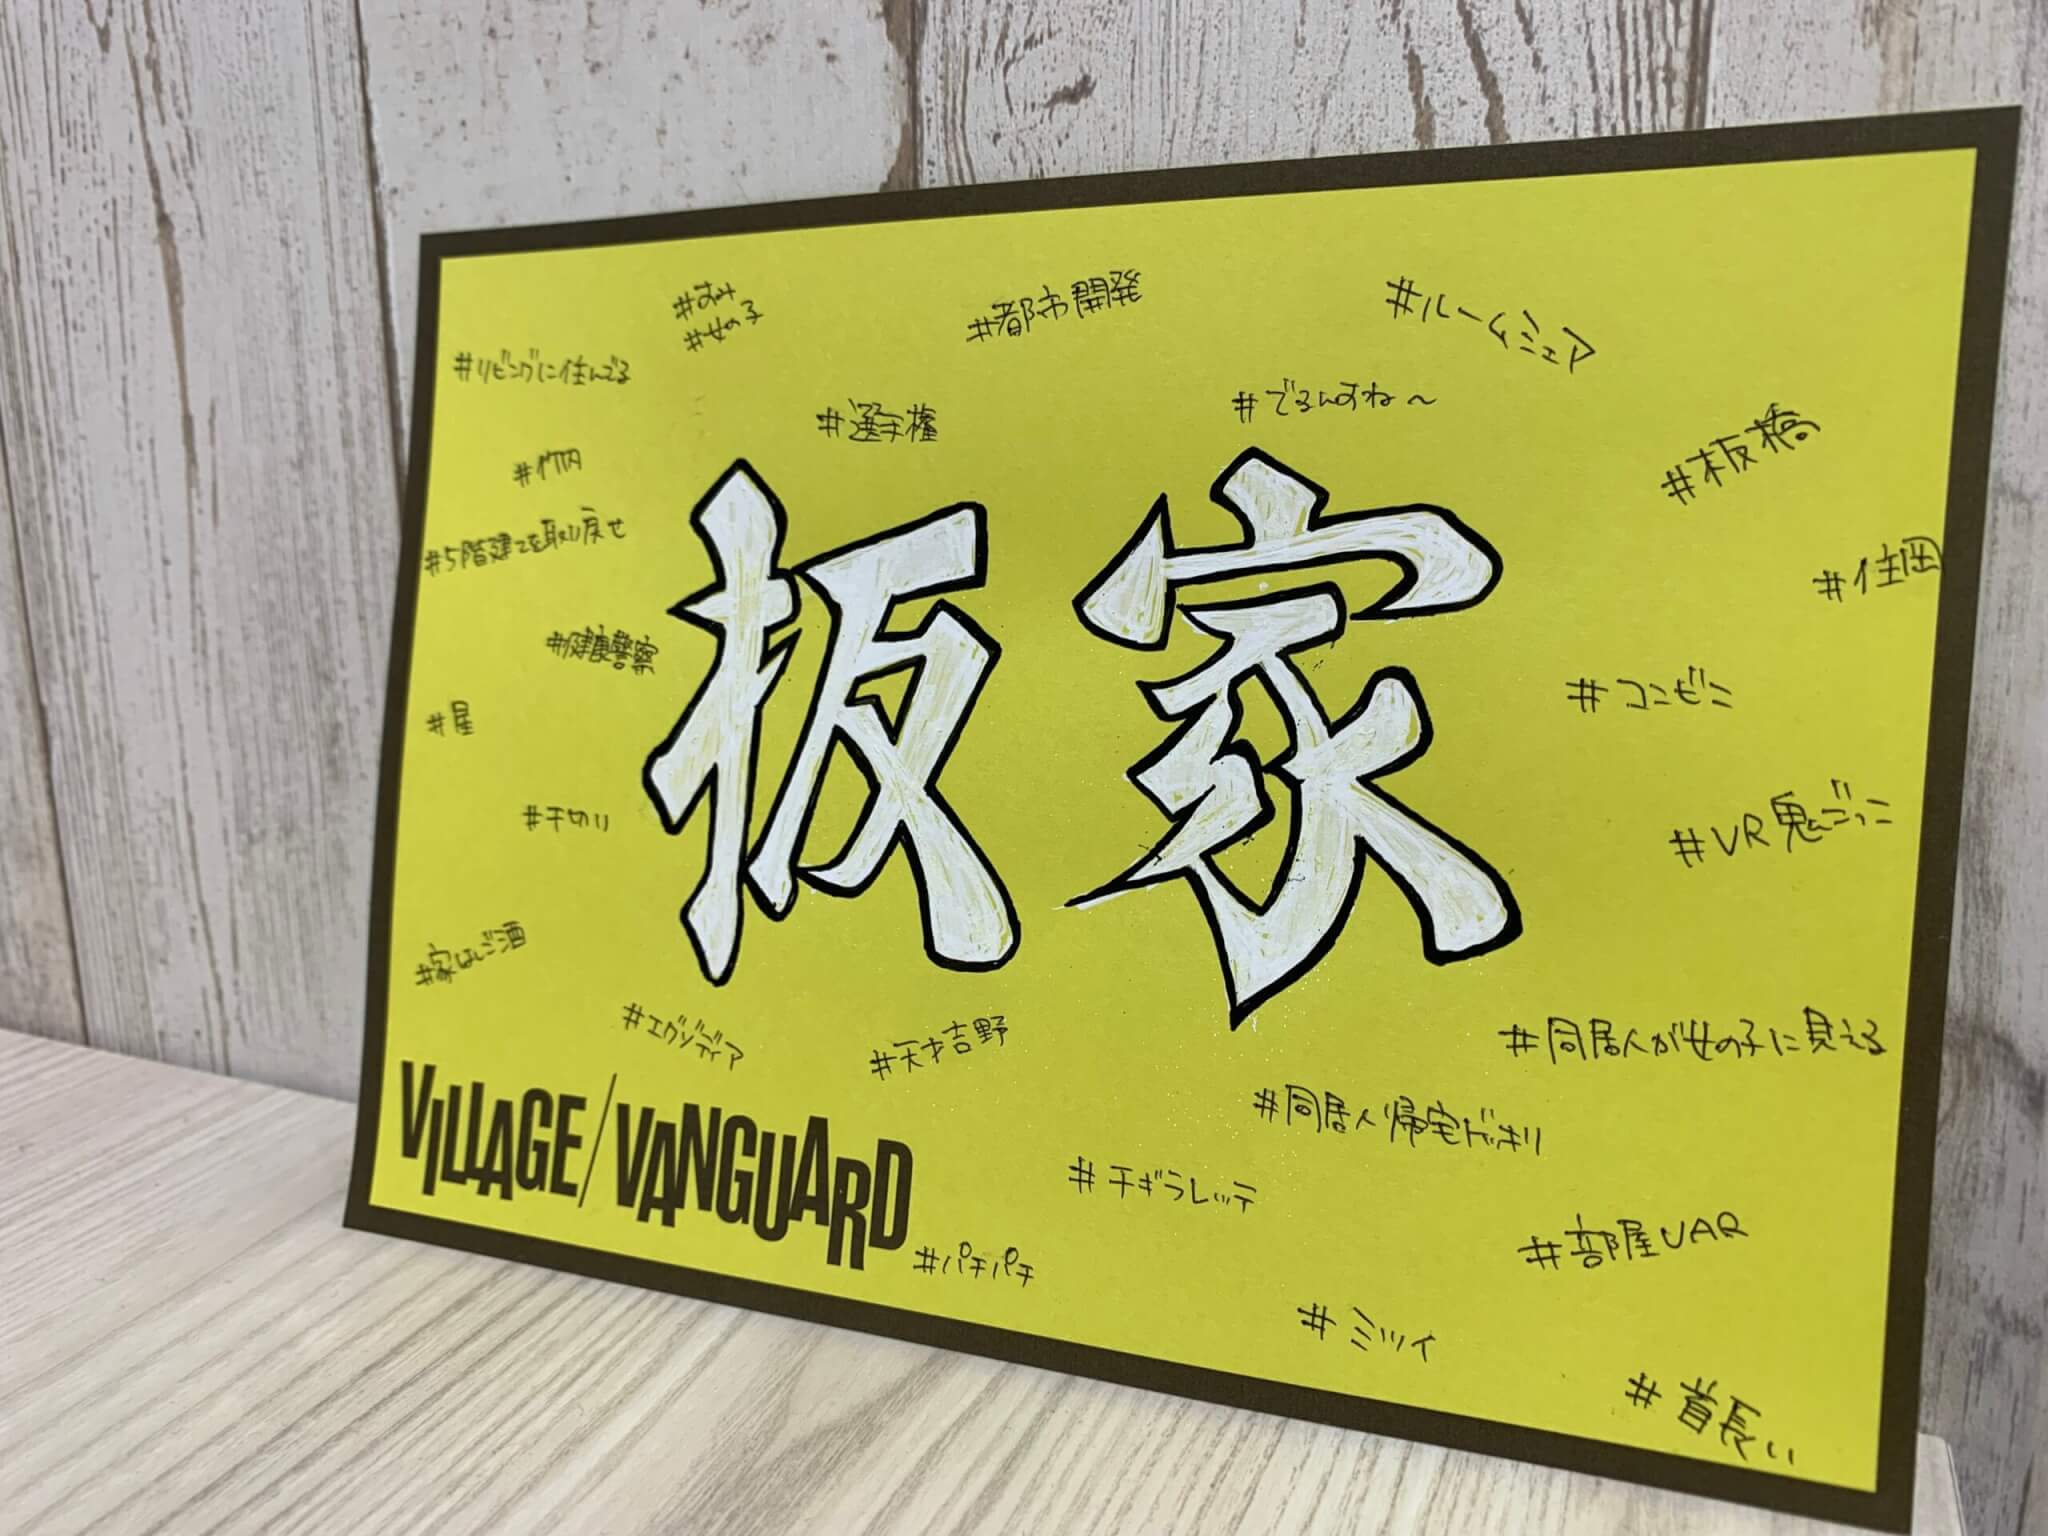 #おみ
#女の子
#都市開発
#ルームシェア
#リビングに住んでる
#選手権
#でるんすね〜
#板橋
#竹内
#5階建てを取り戻せ
#住岡
板家
#健康警察
#コンビニ
#屋
#千切り
#VR鬼ごっこ
#家はしご酒
#エグゾディア
#天才吉野
#同居人が女の子に見える
#同居人帰宅ドッキリ
VILLAGE/VANGUARD
#チギラレッテ
#パチパチ
#部屋VAR
#ミツイ
#首長い